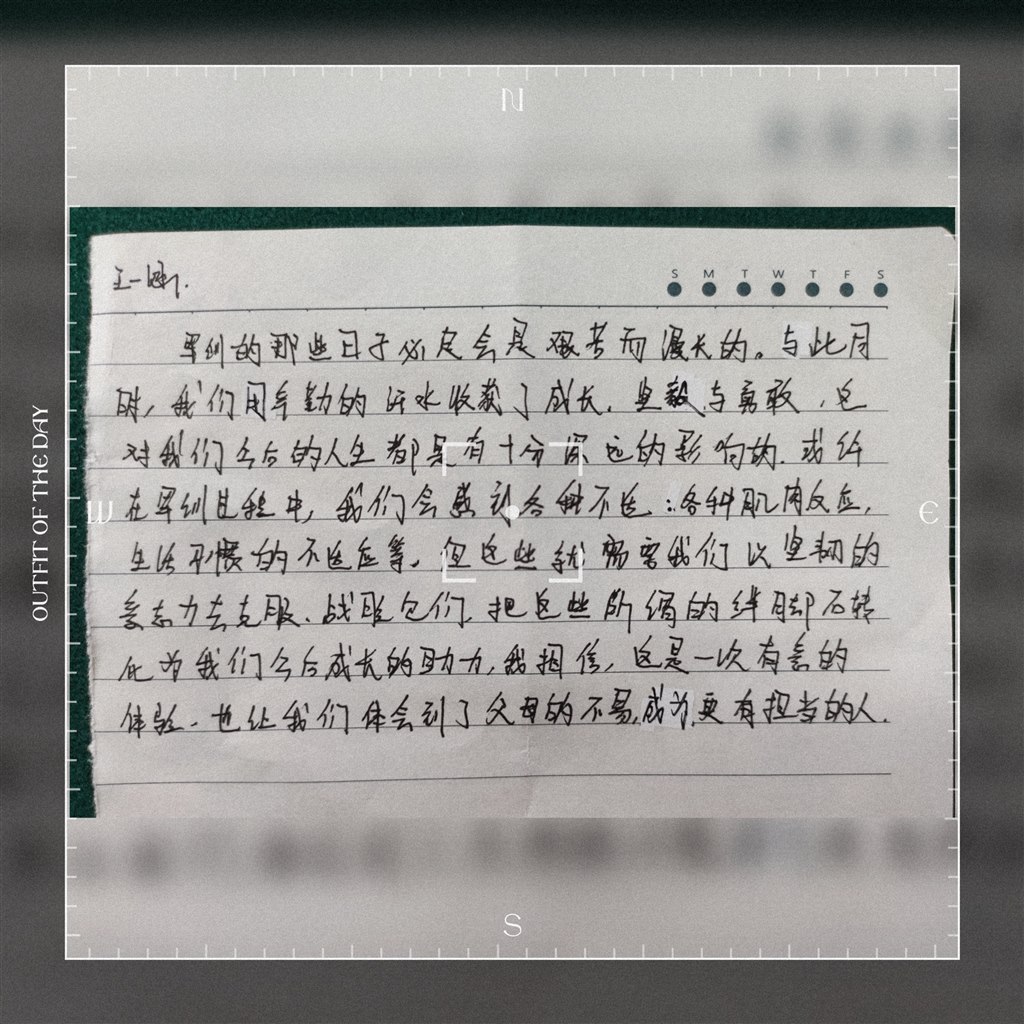 N
王一
S M T W T F S
军训的那些日子必定会是艰苦而漫长的。与此同
时,我们用辛勤的汗水收获了成长,坚毅与勇敢,这
对我们今后的人生都是有十分深远的影响的,或许
在军训过程中,我们会感到各种不适:各种肌肉反应,
生活习惯的不适应等,但这些就需要我们以坚韧的
意志力去克服、战胜它们,把这些所谓的绊脚石转
化为我们今后成长的助力,我相信,这是一次有意的
体验,也让我们体会到了父母的不易,成为更有担当的人.
W
E
S
OUTFIT OF THE DAY